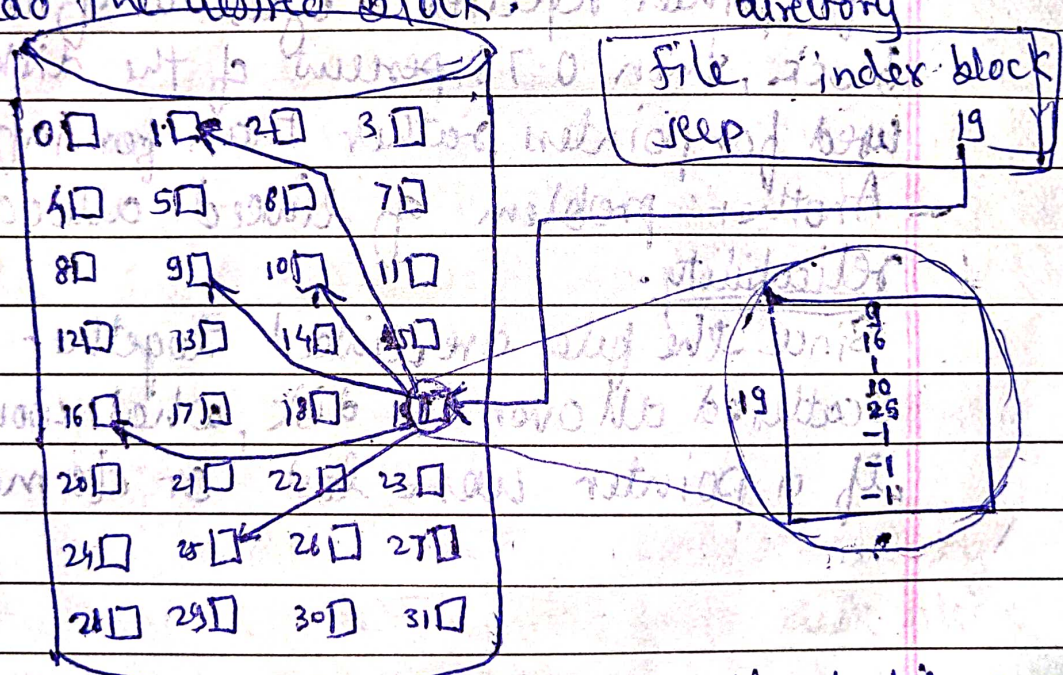 do the desired block.
directory
file index block
jeep 19
0 1 2 3
4 5 6 7
8 9 10 11
12 13 14 15
16 17 18
20 21 22 23
24 25 26 27
28 29 30 31
19
9
16
1
10
25
-1
-1
-1